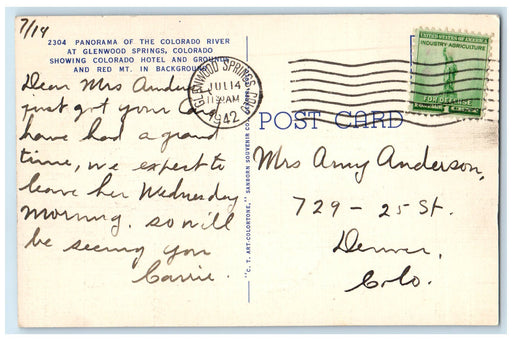 7/14
2304 PANORAMA OF THE COLORADO RIVER
AT GLENWOOD SPRINGS, COLORADO
SHOWING COLORADO HOTEL AND GROUNDS
AND RED MT. IN BACKGROUND
Dear Mrs Anderson
just got your card
have had a grand
time, we expect to
leave her Wednesday
morning. so will
be seeing you
Carrie.
"C. T. ART-COLORTONE," SANBORN SOUVENIR CO.
GLENWOOD SPRINGS, COLO.
JUL 14
AM
1942
UNITED STATES OF AMERICA
INDUSTRY AGRICULTURE
FOR DEFENSE
POST CARD
Mrs Amy Anderson,
729 - 25 St.
Denver,
Colo.